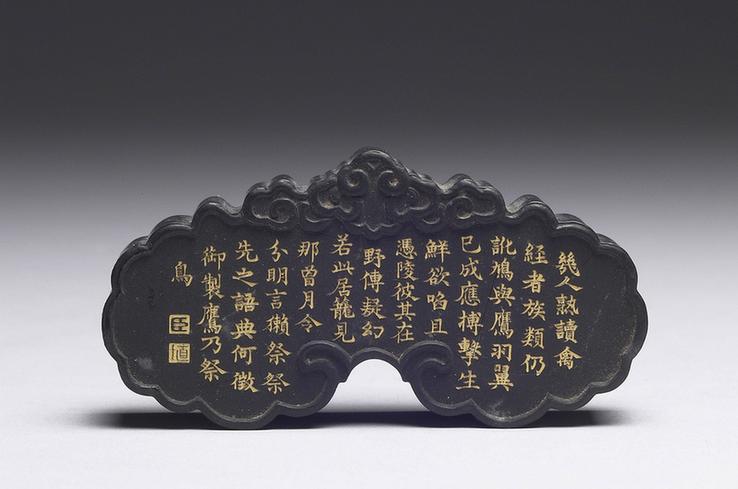 幾人熟讀禽
經者族類仍
訛鳩與鷹羽翼
已成應搏擊生
鮮欲啗且
憑陵彼其在
野傳疑幻
若此居籠見
那曽月令
分明言獺祭祭
先之語典何徵
御製鷹乃祭
鳥